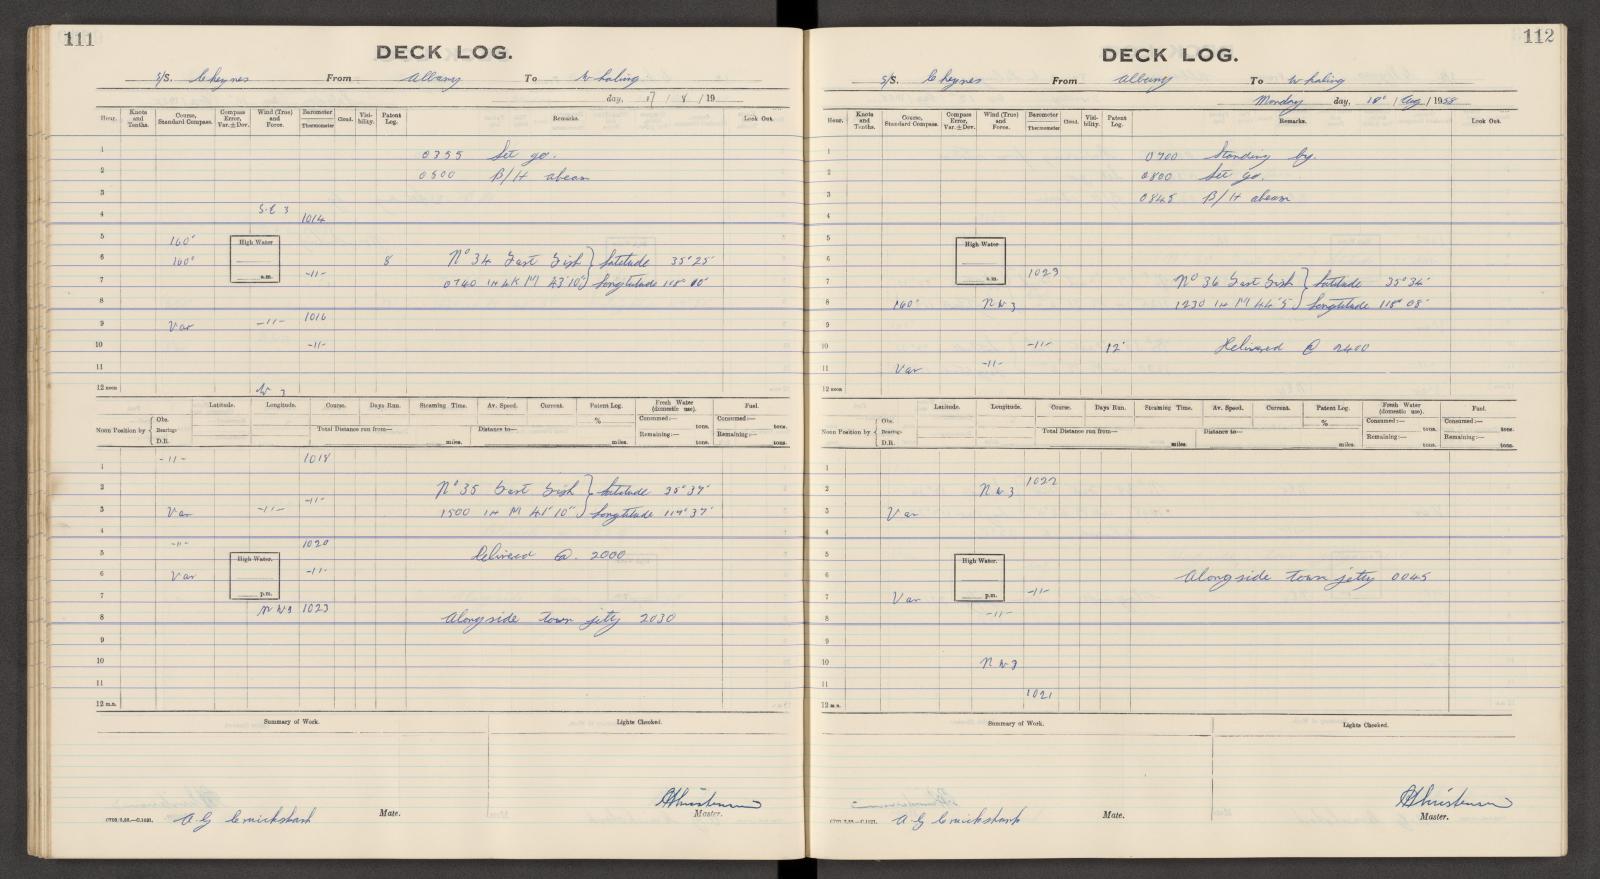 111
DECK LOG.
S/S. Cheynes From Albany To Whaling
day, 17 / 8 / 19
Hour. Knots and Tenths. Course, Standard Compass. Compass Error, Var.±Dev. Wind (True) and Force. Barometer Thermometer Cloud. Visibility. Patent Log. Remarks. Look Out.
1 0355 Set go.
2 0500 B/H abeam
3
4 S.E 3 1014
5 160° High Water
6 160° 8 No 34 Fast Fish } Latitude 35° 25'
a.m. -11-
7 0740 in 4K M 43'10" } Longtitude 118° 00'
8
9 Var -11- 1016
10 -11-
11
12 noon W 3
Latitude. Longitude. Course. Days Run. Steaming Time. Av. Speed. Current. Patent Log. Fresh Water (domestic use). Fuel.
Noon Position by { Obs. Bearings D.R. Total Distance run from— miles. Distance to— miles. % Consumed:— tons. Remaining:— tons. Consumed:— tons. Remaining:— tons.
1 -11- 1018
2 No 35 Fast Fish } Latitude 35° 37'
-11-
3 Var -11- 1500 in M 41' 10" } Longtitude 117° 37'
4
5 -11- 1020 High Water. Delivered @ 2000
6 Var -11-
7 p.m.
8 NW3 1023 Alongside town jetty 2030
9
10
11
12 m.n.
Summary of Work. Lights Checked.
A G Cruickshank Mate. Christensen Master.
112
DECK LOG.
S/S. Cheynes From Albany To Whaling
Monday day, 18° / Aug / 1958
Hour. Knots and Tenths. Course, Standard Compass. Compass Error, Var.±Dev. Wind (True) and Force. Barometer Thermometer Cloud. Visibility. Patent Log. Remarks. Look Out.
1 0700 Standing by.
2 0800 Set go.
3 0845 B/H abeam
4
5 High Water
6 1023
7 a.m. No 36 Fast Fish } Latitude 35° 34'
8 160° NW 3 1230 in M 44'5" } Longtitude 118° 08'
9
10 -11- 12' Delivered @ 2400
11 Var -11-
12 noon
Latitude. Longitude. Course. Days Run. Steaming Time. Av. Speed. Current. Patent Log. Fresh Water (domestic use). Fuel.
Noon Position by { Obs. Bearings D.R. Total Distance run from— miles. Distance to— miles. % Consumed:— tons. Remaining:— tons. Consumed:— tons. Remaining:— tons.
1
2 NW 3 1022
3 Var
4
5 High Water.
6 Alongside town jetty 0045
7 Var p.m. -11-
8 -11-
9
10 NW 3
11 1021
12 m.n.
Summary of Work. Lights Checked.
A G Cruickshank Mate. Christensen Master.